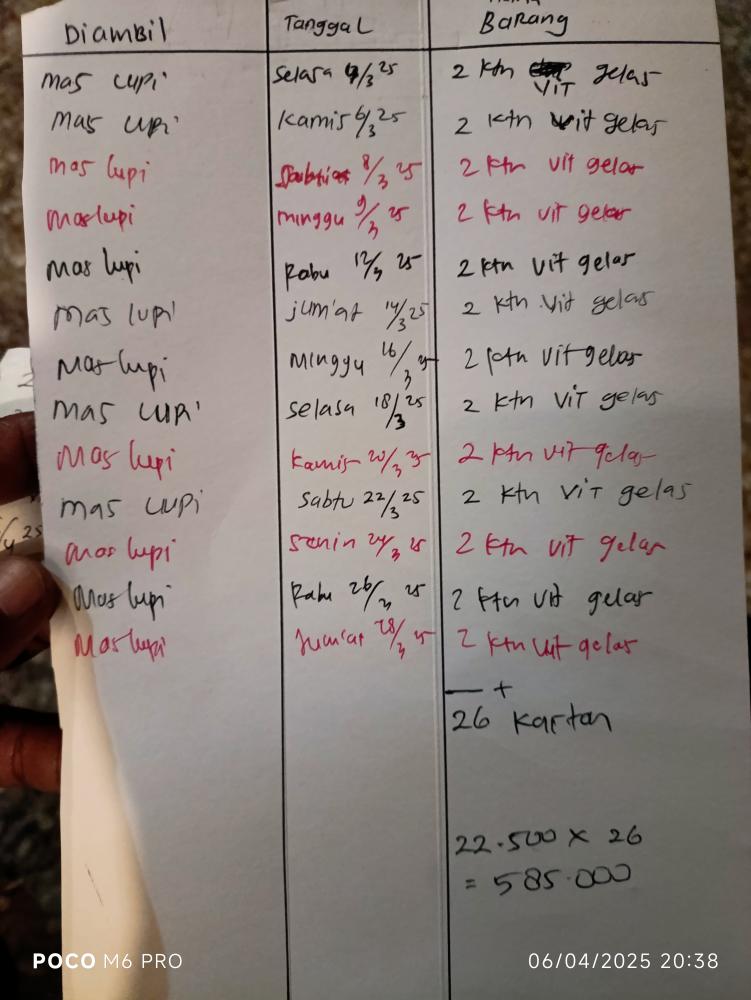 Diambil Tanggal Barang
mas Lupi Selasa 4/3 25 2 ktn VIT gelas
mas Lupi Kamis 6/3 25 2 ktn vit gelas
mas lupi Sabtu 8/3 25 2 ktn vit gelas
mas lupi minggu 9/3 25 2 ktn vit gelas
mas lupi Rabu 12/3 25 2 ktn vit gelas
mas lupi jum'at 14/3 25 2 ktn vit gelas
Mas lupi Minggu 16/3 25 2 ktn vit gelas
mas Lupi Selasa 18/3 25 2 ktn ViT gelas
Mas lupi Kamis 20/3 25 2 ktn vit gelas
mas Lupi Sabtu 22/3 25 2 ktn ViT gelas
mas lupi Senin 24/3 25 2 ktn vit gelas
Mas lupi Rabu 26/3 25 2 ktn vit gelas
Mas lupi Jum'at 28/3 25 2 ktn vit gelas
— +
26 Karton
22.500 x 26
= 585.000
POCO M6 PRO 06/04/2025 20:38